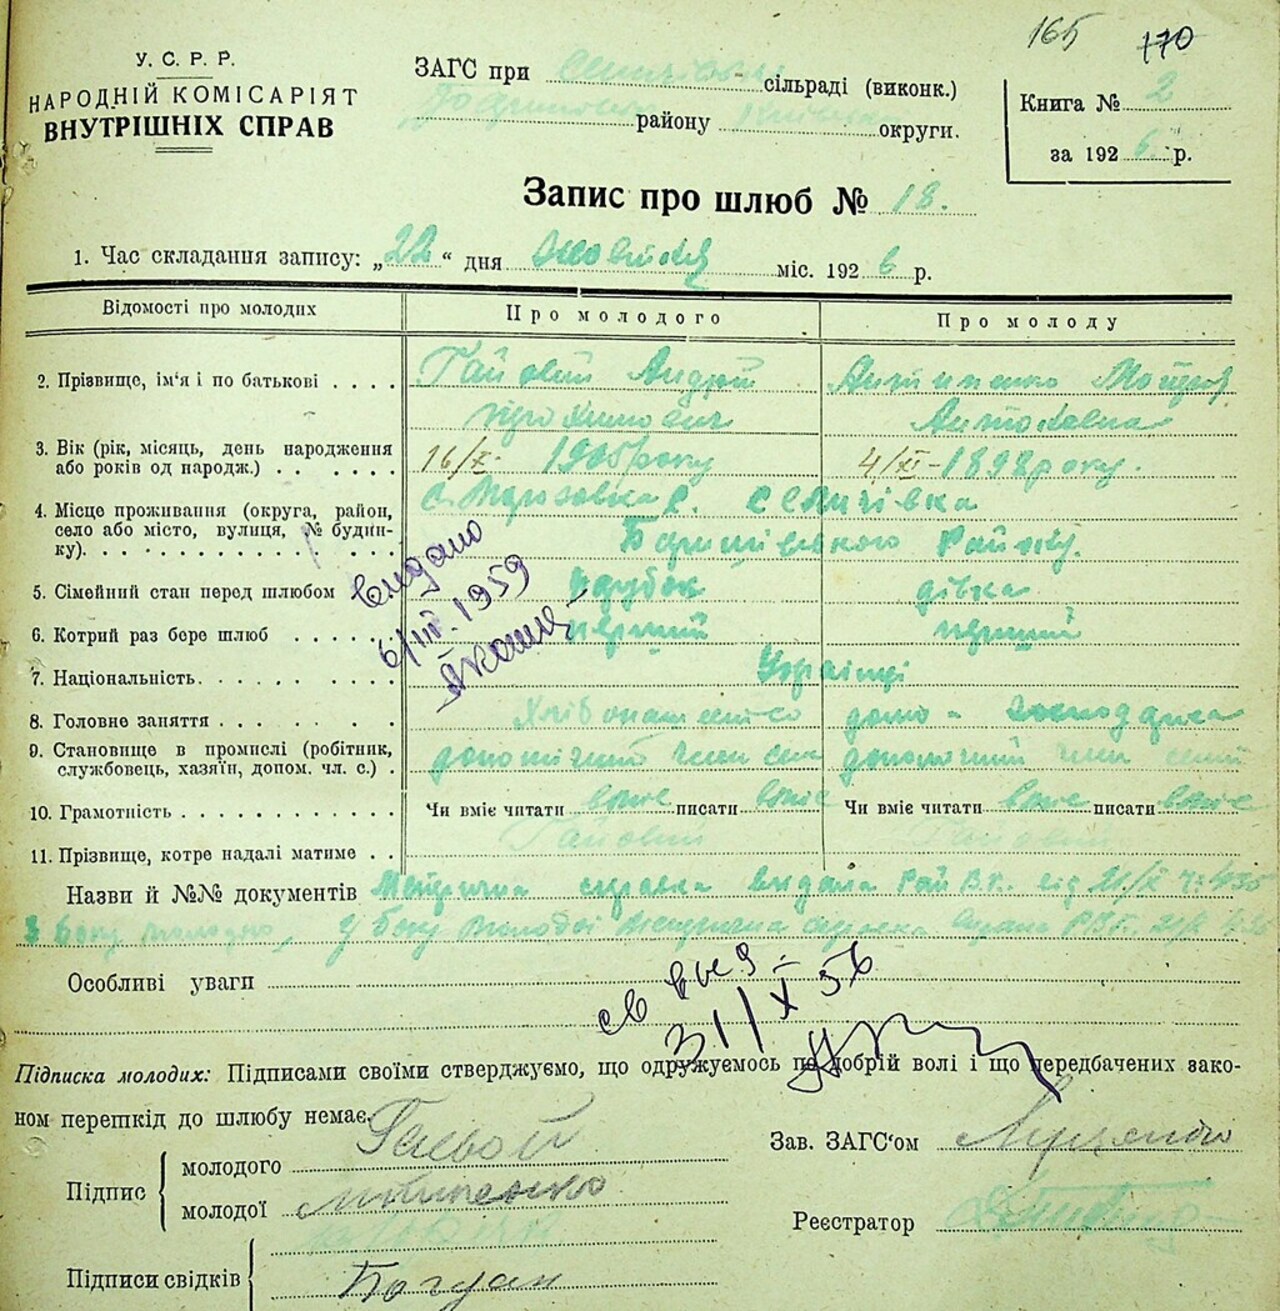 165 170
У. С. Р. Р.
НАРОДНІЙ КОМІСАРІЯТ
ВНУТРІШНІХ СПРАВ
ЗАГС при сільраді (виконк.)
району округи.
Книга № 2
за 1926 р.
Запис про шлюб № 18.
1. Час складання запису: „22“ дня Жовтня міс. 1926 р.
Відомості про молодих Про молодого Про молоду
2. Прізвище, ім'я і по батькові . . . . Гайовий Андрій
3. Вік (рік, місяць, день народження
або років од народж.) . . . . . . 16/X- 1905 року 4/XI-1898 року.
4. Місце проживання (округа, район, с. Морозовка с. Селичівка
село або місто, вулиця, № будин-
ку). . . . . . . . . . . . . . Баришівського Району.
Видано
6/III. 1959
5. Сімейний стан перед шлюбом парубок дівка
6. Котрий раз бере шлюб . . . . . перший перший
7. Національність. . . . . . . . . Українці
8. Головне заняття . . . . . . . Хлібопашество домо-господарка
9. Становище в промислі (робітник,
службовець, хазяїн, допом. чл. с.) . допомічний член сем допомічний член семї
10. Грамотність . . . . . . . . . . . Чи вміє читати вміє писати вміє Чи вміє читати вміє писати вміє
11. Прізвище, котре надалі матиме . . Гайовий Гайовий
Назви й №№ документів Метрична справка видана Рай В.К. від 21/X
з боку молодого, У боку молодої метрична справка
Особливі уваги
31/X 56
Підписка молодих: Підписами своїми стверджуємо, що одружуємось по добрій волі і що передбачених зако-
ном перешкід до шлюбу немає.
Зав. ЗАГС'ом
Підпис молодого Гаевой
молодої
Реєстратор
Підписи свідків Богдан